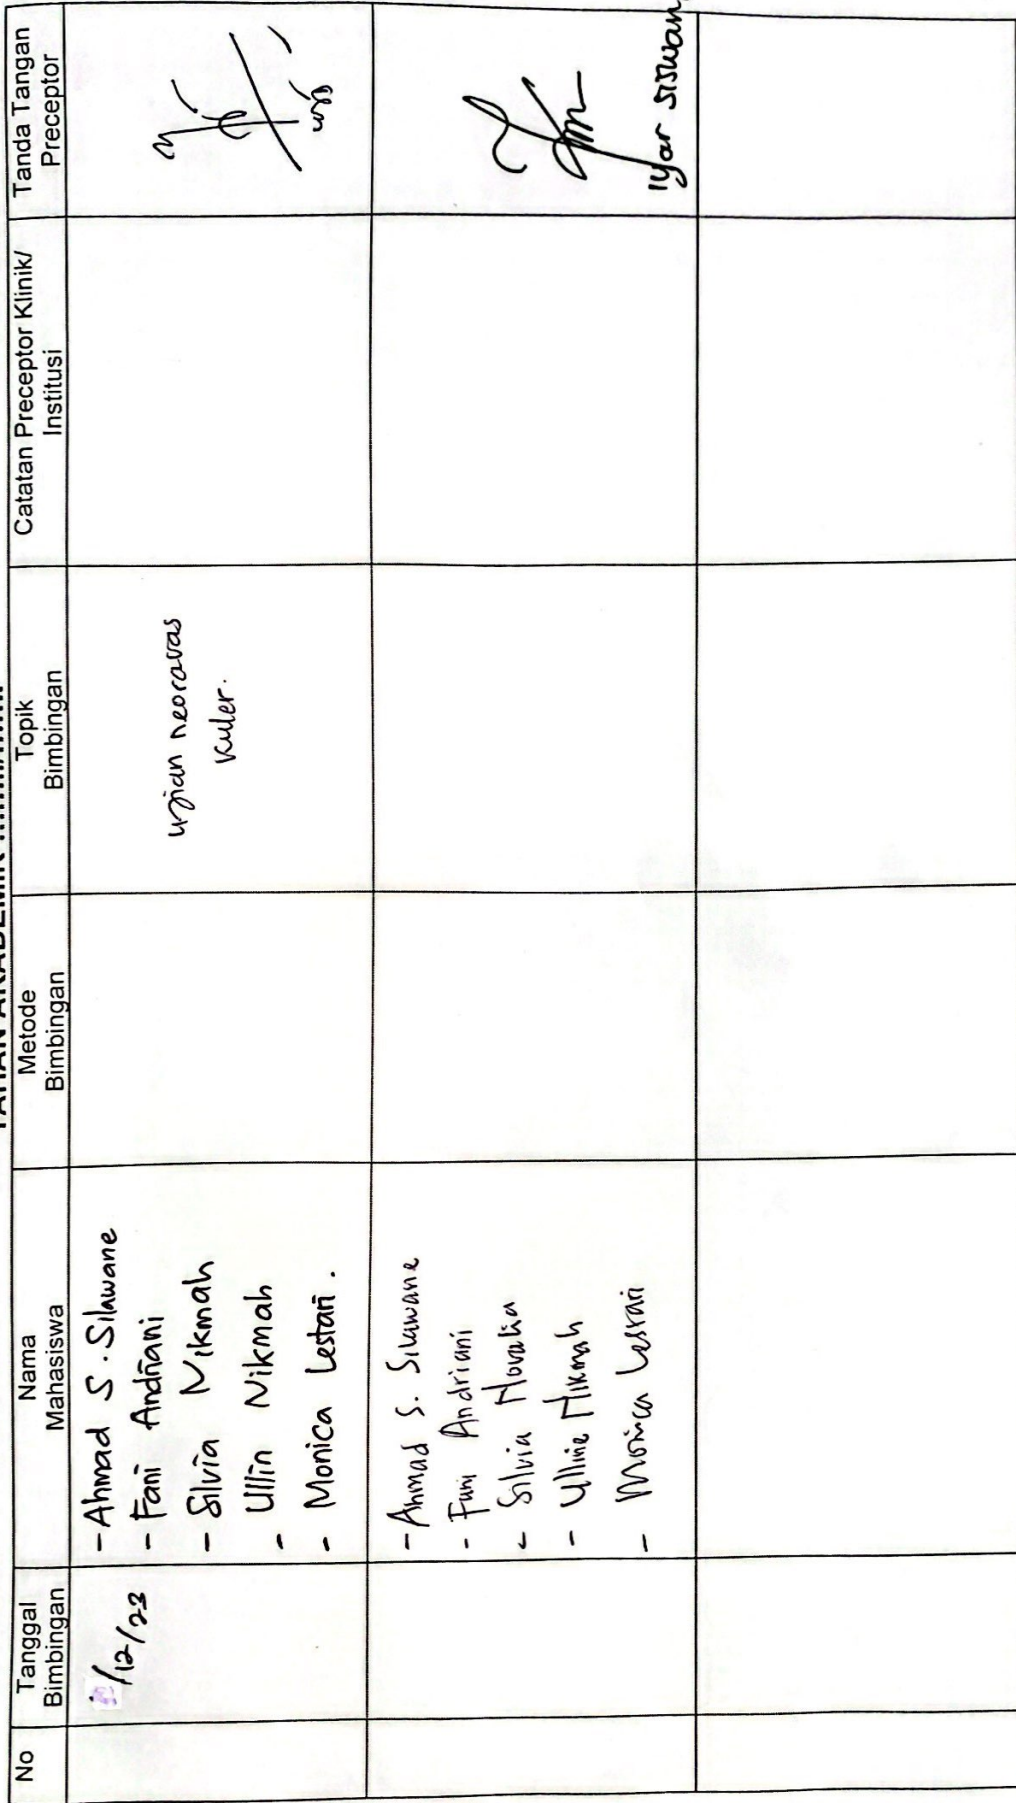 No
Tanggal
Bimbingan
Nama
Mahasiswa
Metode
Bimbingan
Topik
Bimbingan
Catatan Preceptor Klinik/
Institusi
Tanda Tangan
Preceptor
/12/23
- Ahmad S. Silawane
- Fani Andriani
- Silvia Nikmah
- Ullin Nikmah
- Monica Lestari.
ujian
kuler.
- Ahmad S. Silawane
- Fani Andriani
- Silvia Novalia
- Ulline Hikmah
- Monica Lestari